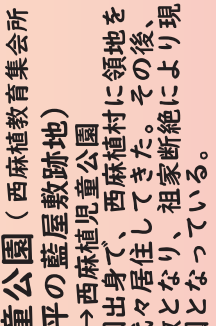 童公園（西麻植教育集会所
平の藍屋敷跡地）
→西麻植児童公園
出身で、西麻植村に領地を
々居住してきた。その後、
となり、祖家断絶により現
となっている。